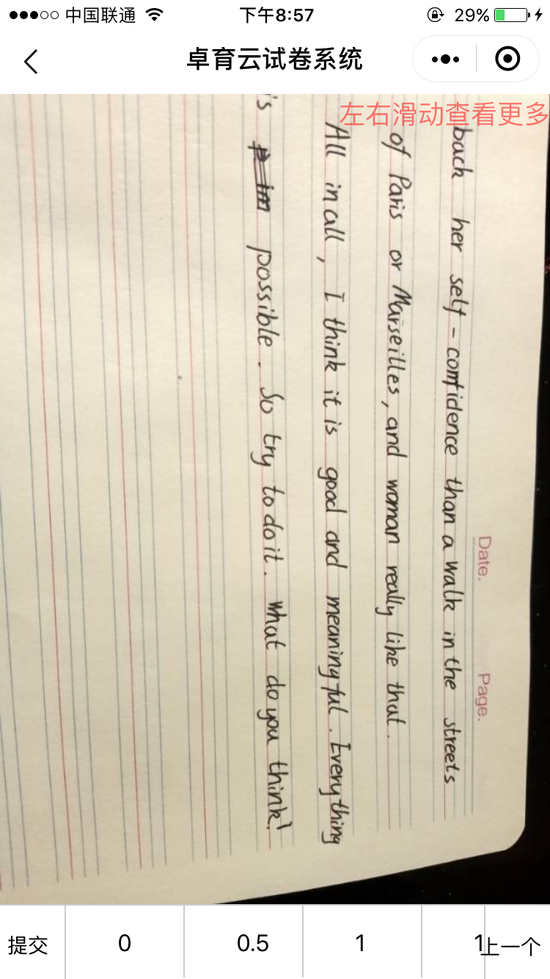 中国联通 下午8:57 29%
卓育云试卷系统
左右滑动查看更多
Date. Page.
back her self-confidence than a walk in the streets
of Paris or Marseilles, and woman really like that.
All in all, I think it is good and meaningful. Everything
is possible. So try to do it. What do you think!
提交 0 0.5 1 1 上一个